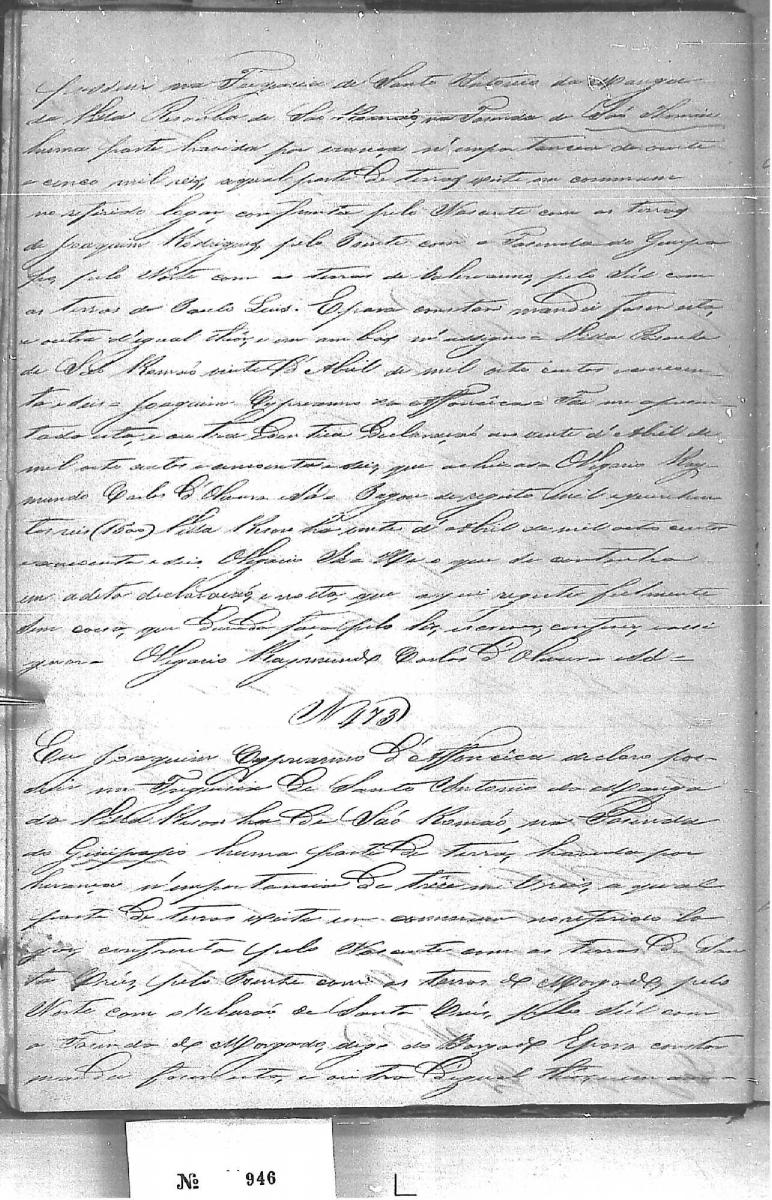 possuir na Freguesia de Santo Antonio da Manga
da Villa Risonha de São Romaõ, na Fasenda de São
huma parte havida por erança n'importancia de vinte
e cinco mil reis, a qual parte de terras existe em commum
no referido logar confronta pelo Nascente com as terras
de Joaquim Rodrigues, pelo Poente com a Fasenda do Genipa
po, pelo Norte com as terras de pelo Sul com
as terras do Paulo Luis. E para constar mandei faser esta,
e outra d'igual thiôr, e em ambas m'assigno = Villa Risonha
de São Romaõ vinte d'Abril de mil oito centos e cincoen
ta e seis = Joaquim Cypreanno da Affoncica = Foi me apresen
tada esta, e outra Declaraçaõ aos vinte d'Abril de
mil oito centos e cincoenta e seis, que achei Olegario Ray
mundo Carlos D'Olivera Pagou de registo mil e quinhen
tos reis (1500) Villa Risonha vinte d'Abril de mil oito centos
e cincoenta e seis Olegario e o que se continha
em a dita declaraçaõ, e notta, que aqui registei fielmente
sem cousa, que duvida faça, pelo ler, escrever, conferir, e assi
gnar = Olegario Raymundo Carlos D'Olivera
N 173
Eu Joaquim Cypreanno d'Affoncica declaro pos-
suir na Freguesia de Santo Antonio da Manga
da Villa Risonha de São Romaõ, na Fasenda
do Genipapo huma parte de terra, havida por
herança n'importancia de trese mil reis, a qual
parte de terras existe em commum no referido lo
gar, confronta pelo Nascente com as terras de San
ta Cruz, pelo Poente com as terras do Morgado, pelo
Norte com de Santa Cruz, pelo Sul com
a Fasenda do Morgado, digo do E para constar
mandei faser esta, e outra d'igual thiôr, e em am-
Nº 946